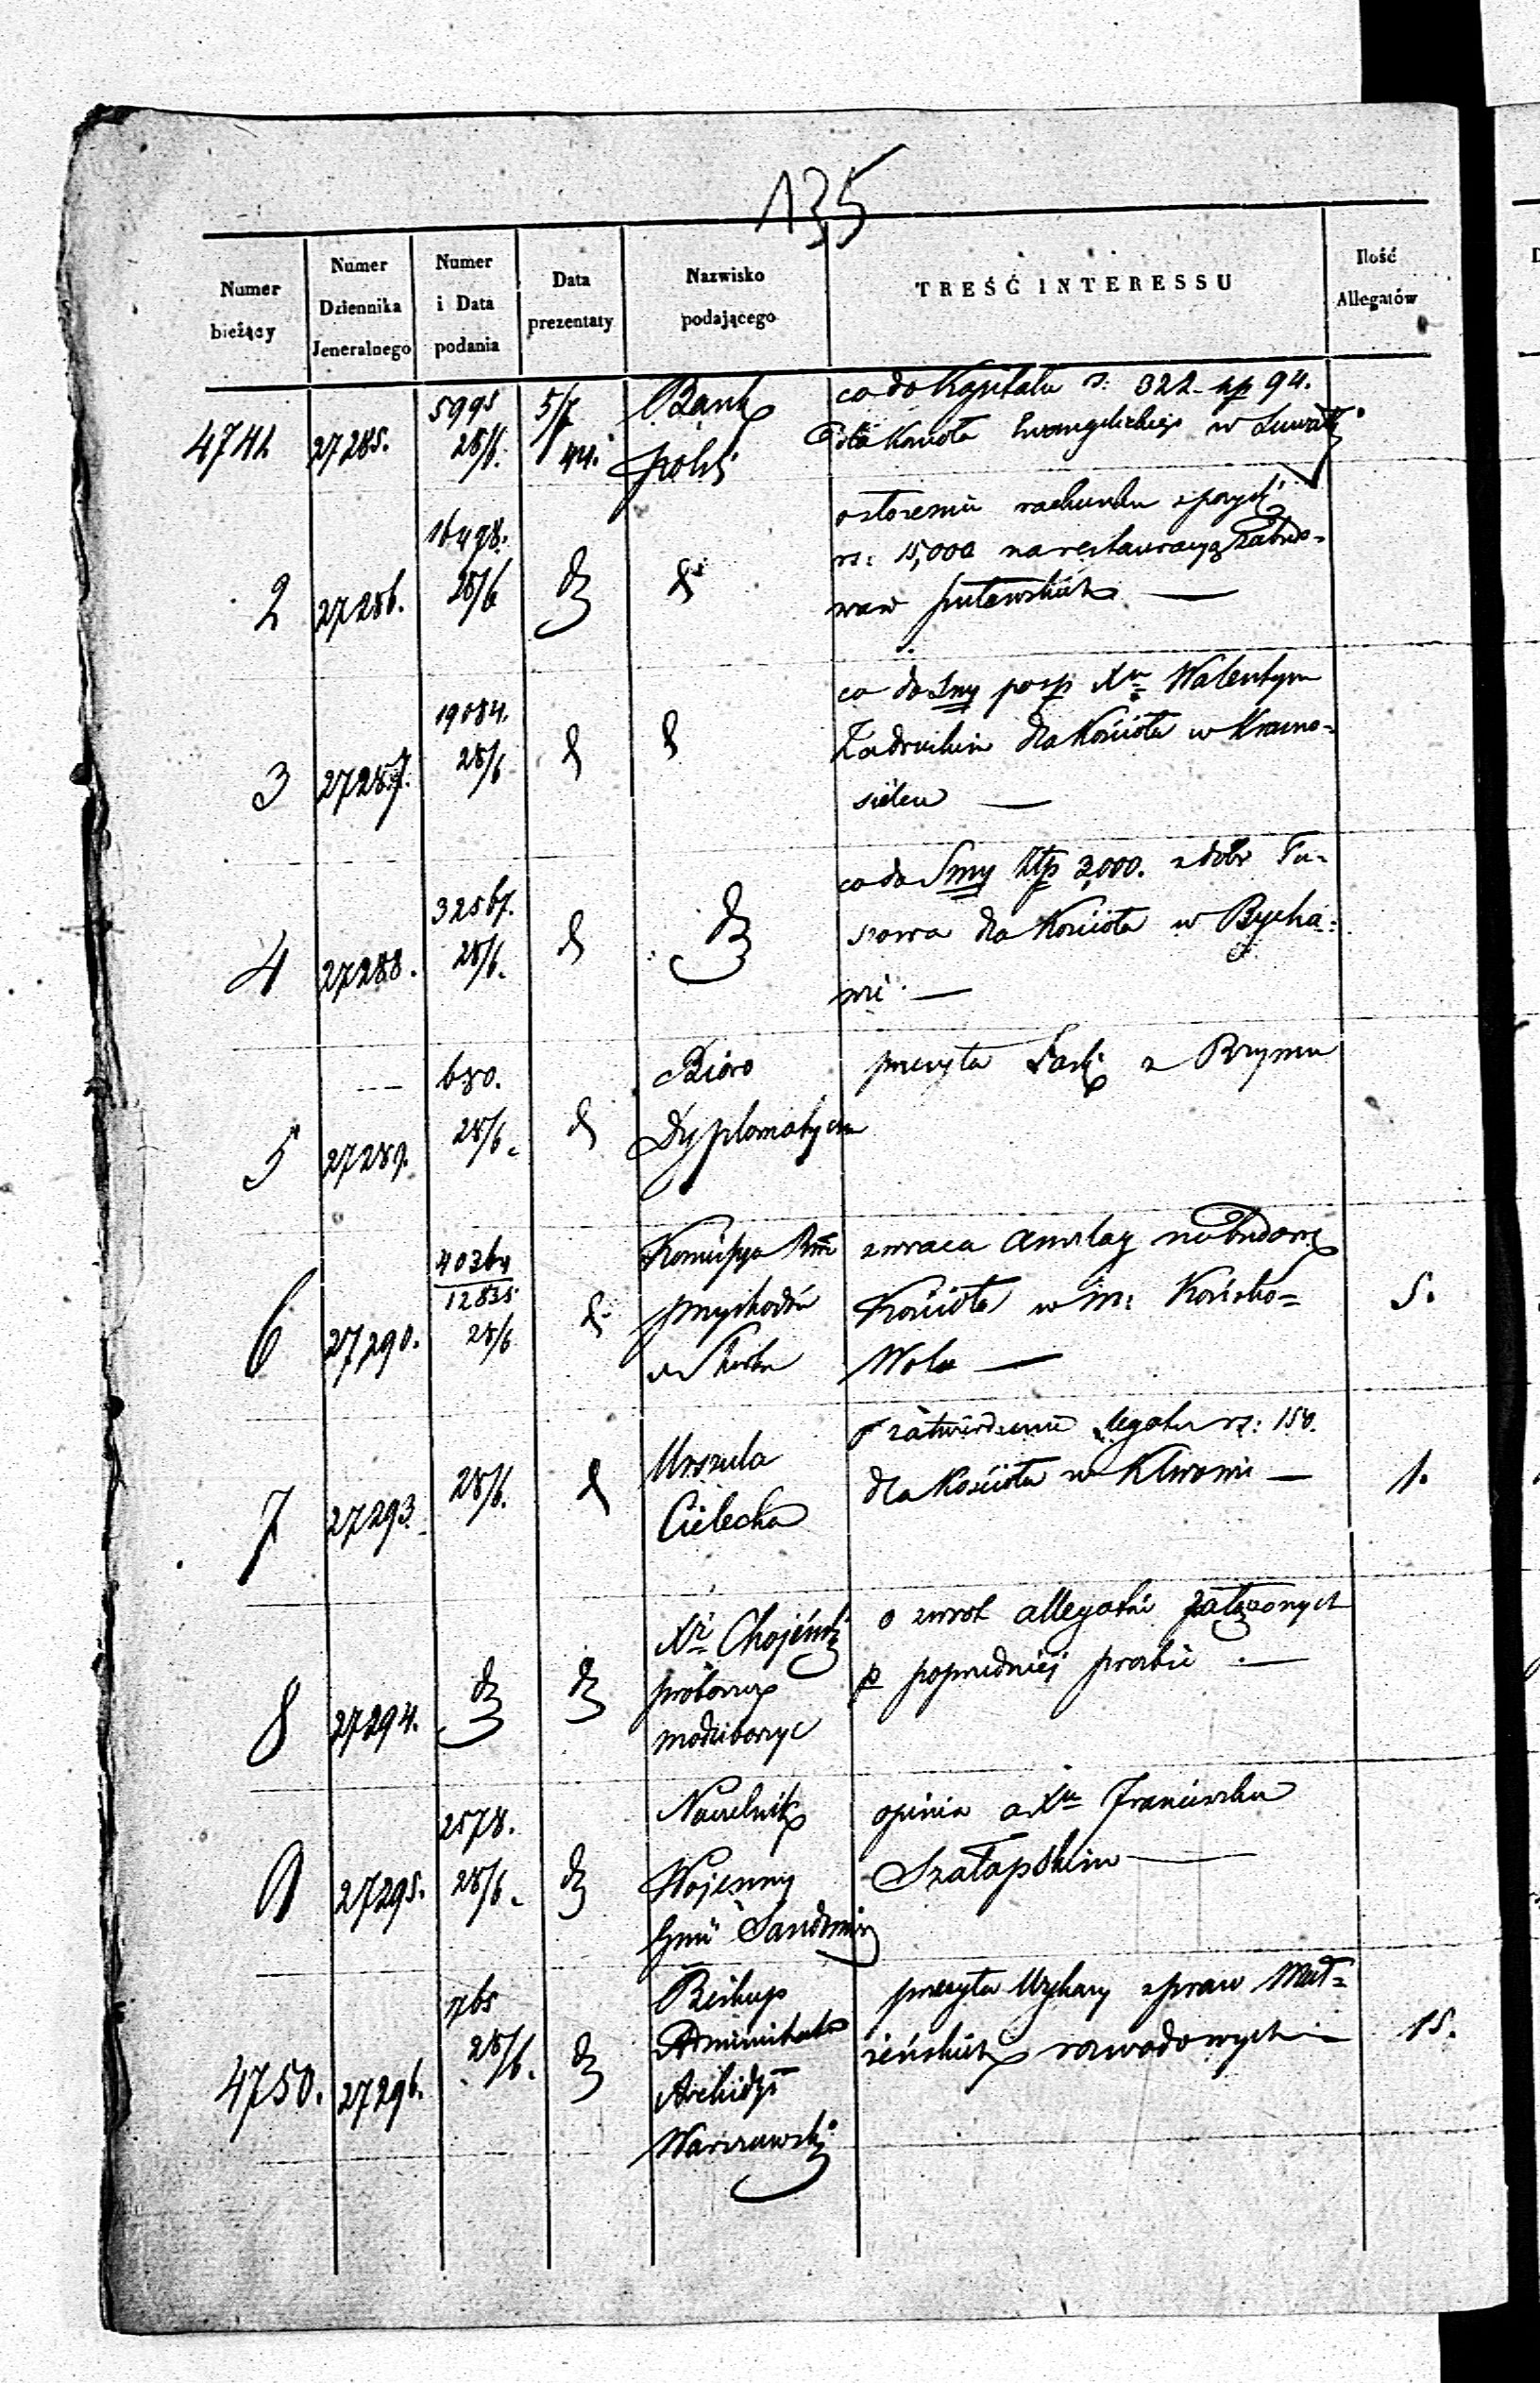 135
Numer bieżący | Numer Dziennika Jeneralnego | Numer i Data podania | Data prezentaty | Nazwisko podającego | TREŚĆ INTERESSU | Ilość Allegatów
4741. 27285. 5995 28/6. 5/7 44. Bank polski
co do Kapitału rs: 322. kp 94.
dla Kościoła Ewangelickiego w Suwałk
2 27286. 16498. 28/6 do do
o złożenie rachunku z pożycz
rs: 15,000 na restauracyą Zabudo=
wań puławskich —
3 27287. 19084. 28/6 do do
co do Smy po Xu Walentym
dla Kościoła w Krasno=
sielcu —
4 27288. 32567. 28/6. do do
co do Smy Złp 3,000. z dóbr Tu=
szowa dla Kościoła w Bycha=
wie. —
5 27289. 680. 28/6. do
Bióro
Dyplomatyczne
przesyła z Rzymu
6 27290. 40364/12835. 28/6 do
Komisya Rzą
przychodów
i Skarbu
zwraca anszlag na budowę
Kościoła w m: Końsko=
Wola —
5.
7 27293. 28/6. do
Urszula
Cielecka
o zatwierdzenie legatu rs: 150.
dla Kościoła w Klwowie —
1.
8 27294. do do
Xdz Chojeński
proboszcz
Modliborzyc
o zwrot allegatów załączonych
p poprzedniej prośbie. —
9 27295. 2578. 28/6. do
Naczelnik
Wojenny
Gunii Sandomir
opinia o Xu Franciszku
Szałapskim —
4750. 27296. 765 28/6. do
Biskup
Administrator
Archidyi
Warszawski
przesyła Wykazy spraw Mał=
żeńskich rozwodowych —
15.